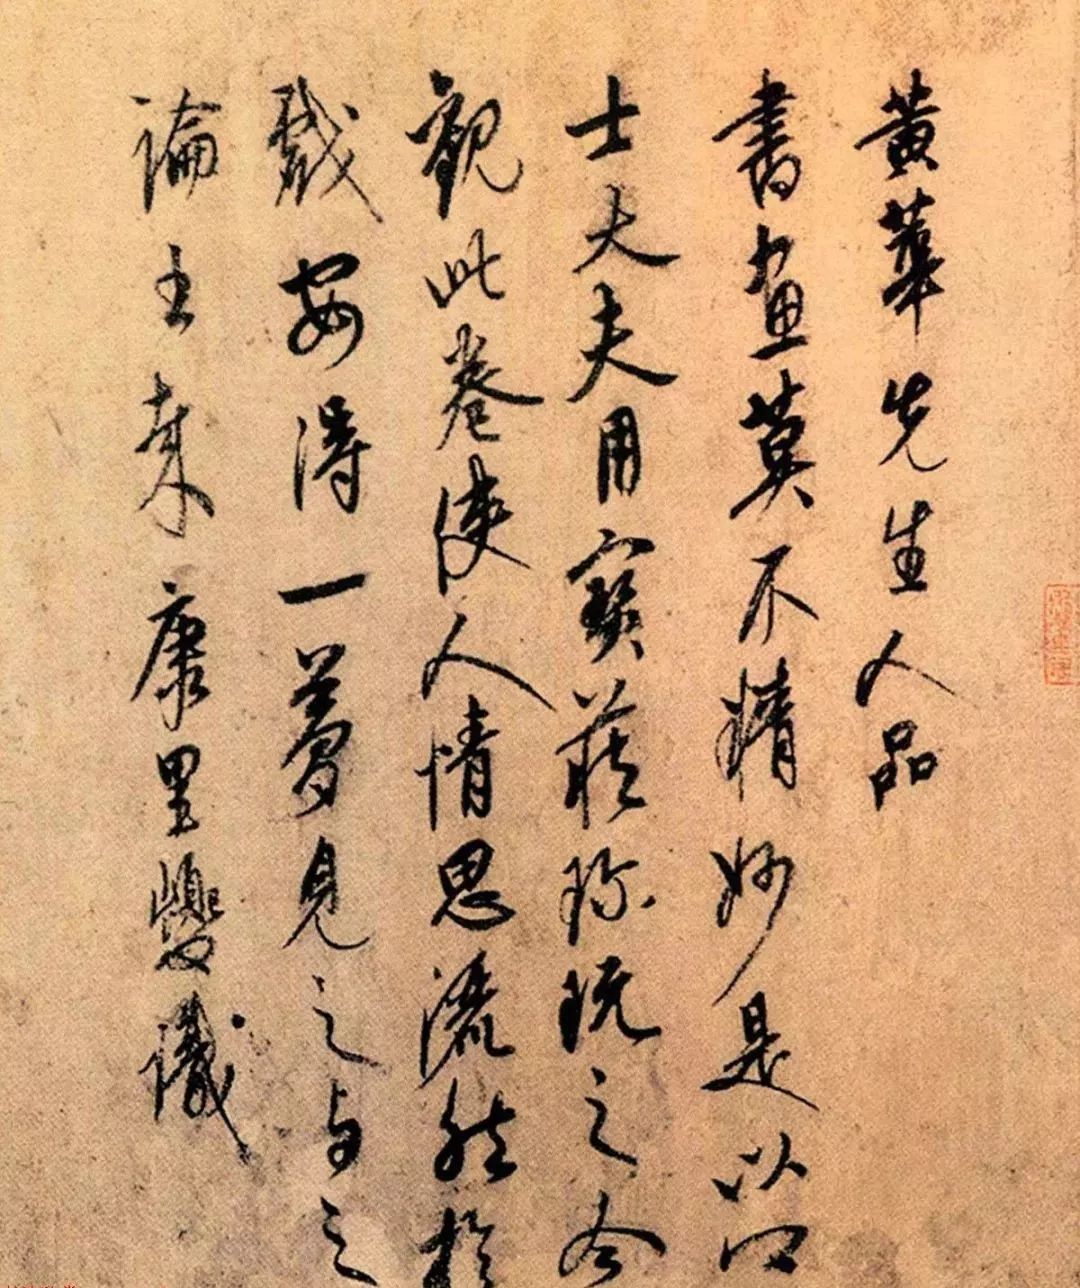 黃華先生人品
書畫莫不精妙是以
士大夫用寶藏珍玩之今
觀此卷使人情思灑然於
戲安得一夢見之與之
論康里巎識